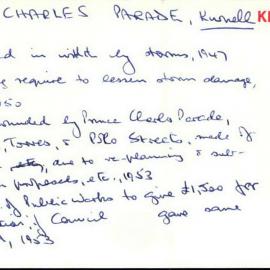 CHARLES PARADE, Kurnell K
ed in width by storms, 1947
g require to lessen storm damage,
50
ounded by Prince Charles Parade,
Torres, & Polo Streets, made of
due to re-planning & sub-
purposes, etc., 1953
of Public Works to give £1,500 for
of Council gave same
, 1953